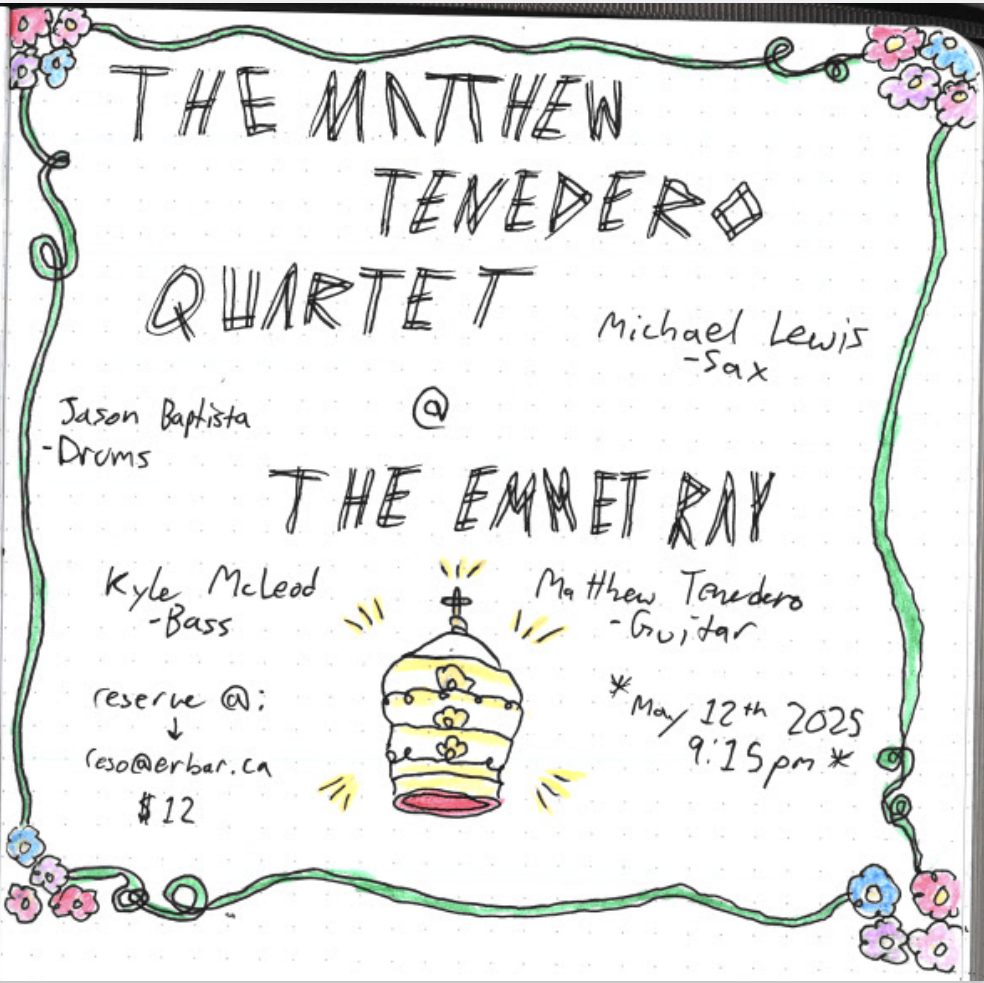 THE MATTHEW
TENEDERO
QUARTET
Michael Lewis
-Sax
@
Jason Baptista
-Drums
THE EMMET RAY
Kyle McLeod
-Bass
Matthew Tenedero
-Guitar
reserve @:
↓
reso@erbar.ca
$12
*May 12th 2025
9:15pm*